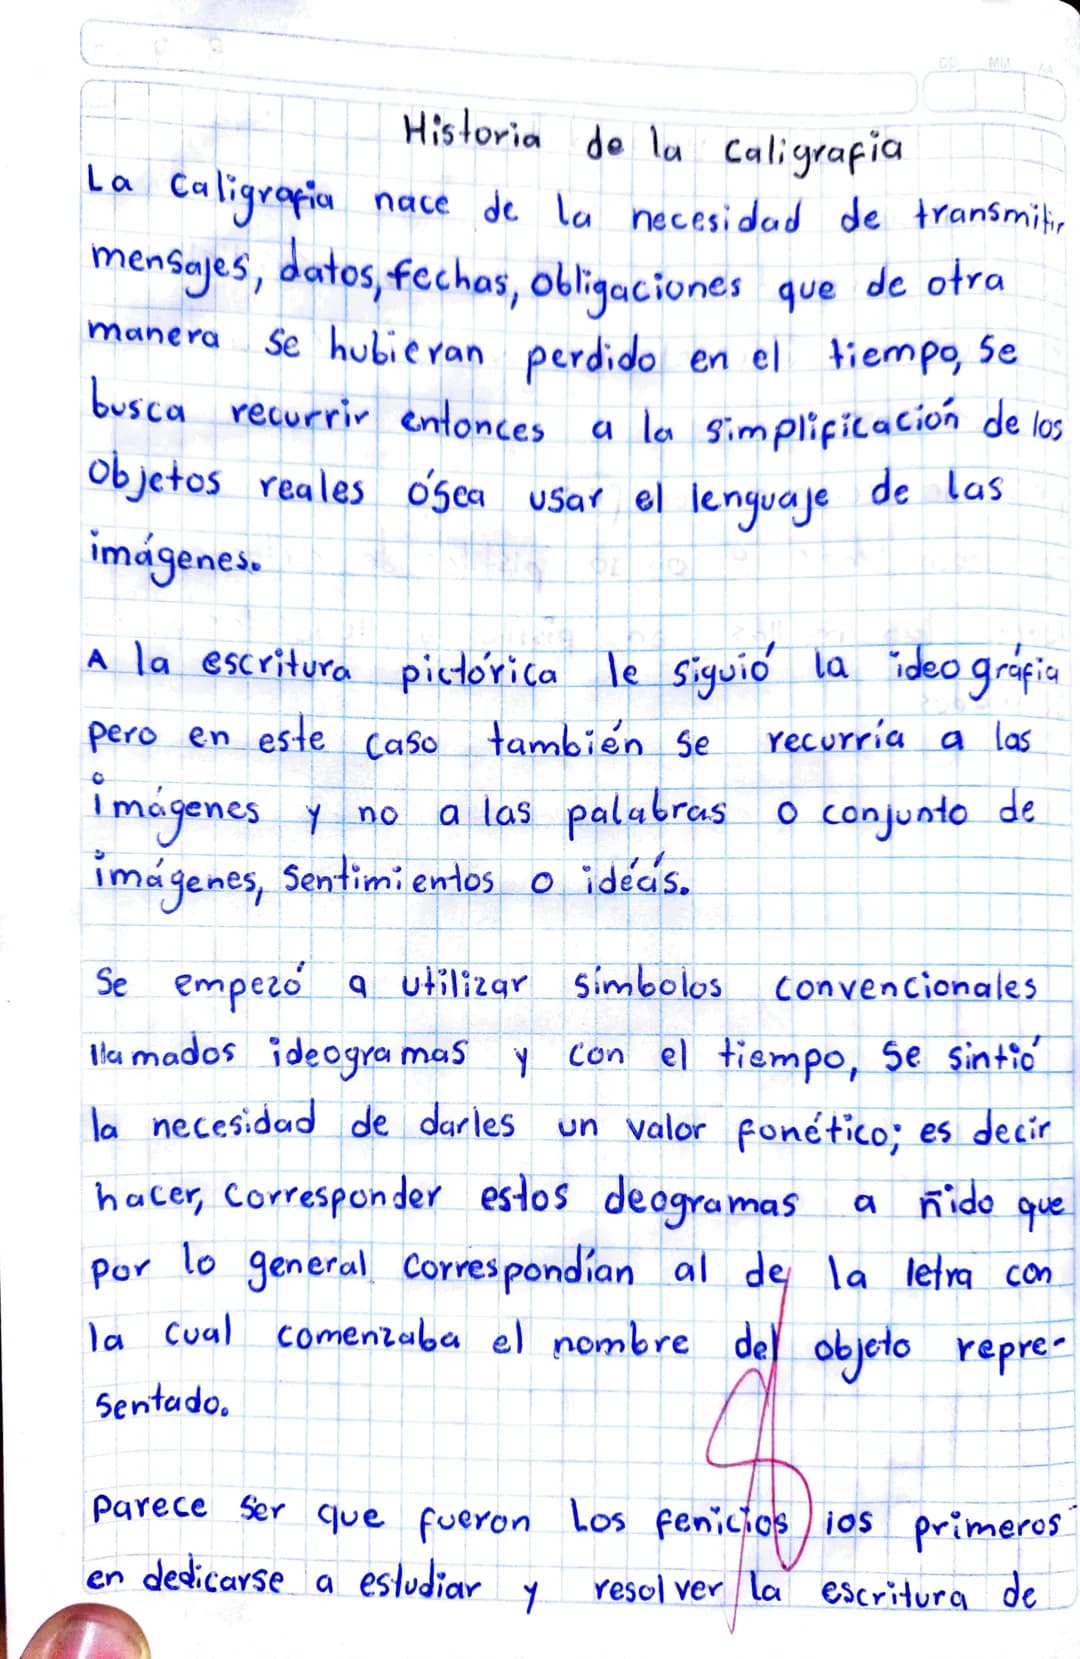 Historia de la caligrafia
La caligrafia nace de la necesidad de transmitir
mensajes, datos, fechas, obligaciones que de otra
manera se hubieran perdido en el tiempo, se
busca recurrir entonces a la simplificación de los
objetos reales ósea usar el lenguaje de las
imágenes.
A la escritura pictórica le siguió la ideográfia
pero en este caso también se recurría a las
imágenes y no a las palabras o conjunto de
imágenes, sentimientos o idéas.
Se empezó a utilizar símbolos convencionales
llamados ideogramas y con el tiempo, se sintió
la necesidad de darles un valor fonético; es decir
hacer, corresponder estos deogramas a ñido que
por lo general correspondían al de la letra con
la cual comenzaba el nombre del objeto repre-
sentado.
Parece ser que fueron los fenicios ios primeros
en dedicarse a estudiar y resolver la escritura de